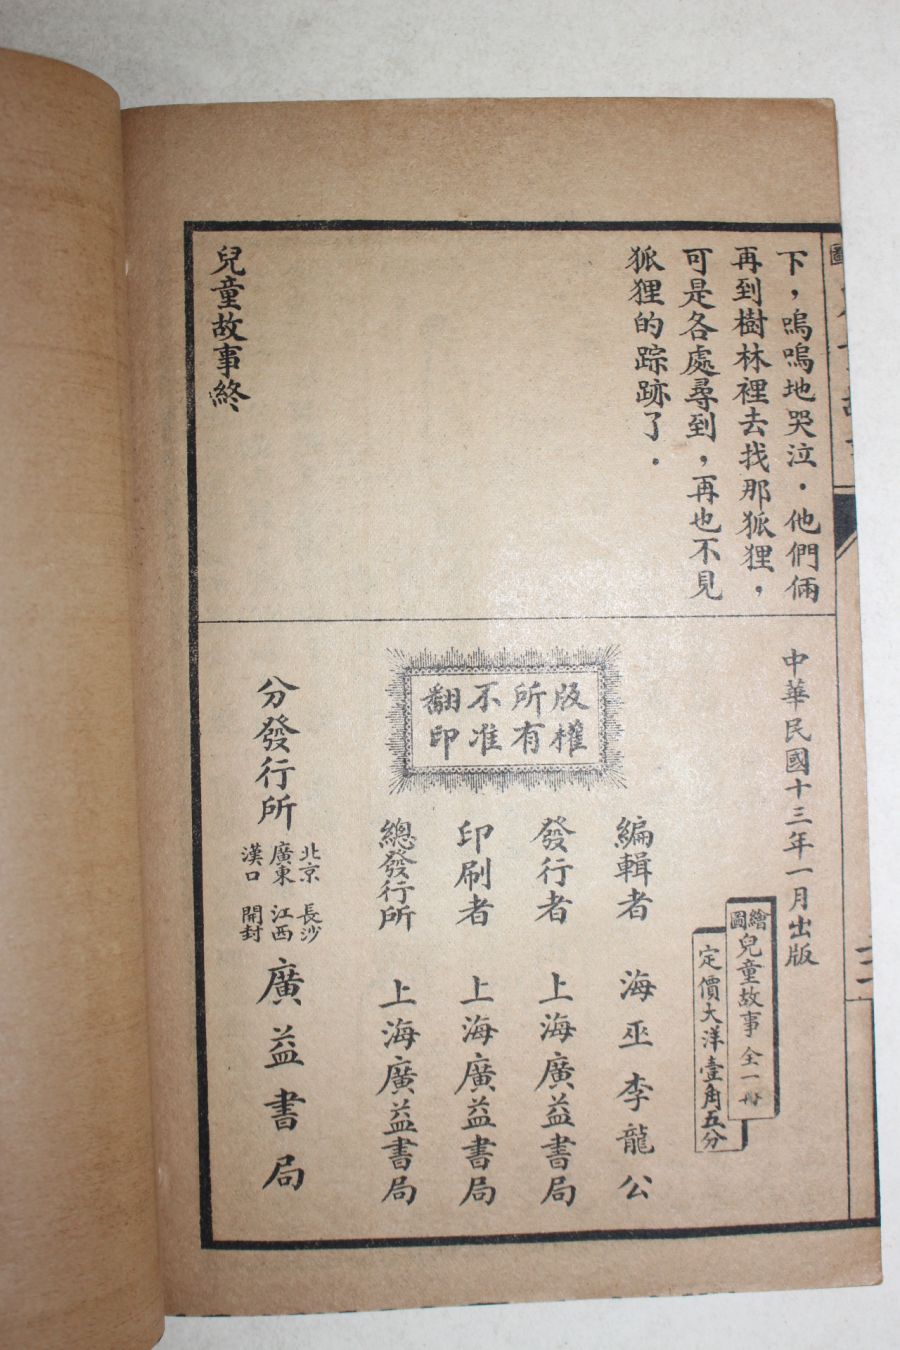 下，嗚嗚地哭泣．他們倆
再到樹林裡去找那狐狸，
可是各處尋到，再也不見
狐狸的踪跡了．
兒童故事終
中華民國十三年一月出版
繪圖兒童故事全一冊
定價大洋壹角五分
版權
所有
不准
翻印
編輯者 海巫李龍公
發行者 上海廣益書局
印刷者 上海廣益書局
總發行所 上海廣益書局
分發行所
北京 長沙
廣東 江西
漢口 開封
廣益書局